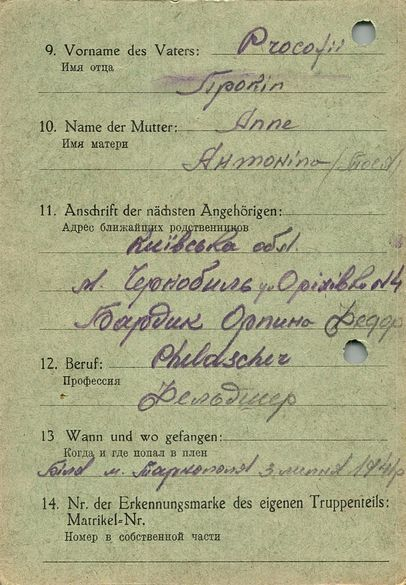 9. Vorname des Vaters: Procofii
Имя отца
Прокіп
10. Name der Mutter: Anne
Имя матери
Антоніна
11. Anschrift der nächsten Angehörigen:
Адрес ближайших родственников
Київська обл.
м. Чернобиль ул Оріхівка №4
Бардик Орпина Федор
12. Beruf: Pheldscher
Профессия
Фельдшер
13 Wann und wo gefangen:
Когда и где попал в плен
Біля м. Тарнополя 3 липня 1941р
14. Nr. der Erkennungsmarke des eigenen Truppenteils:
Matrikel-Nr.
Номер в собственной части